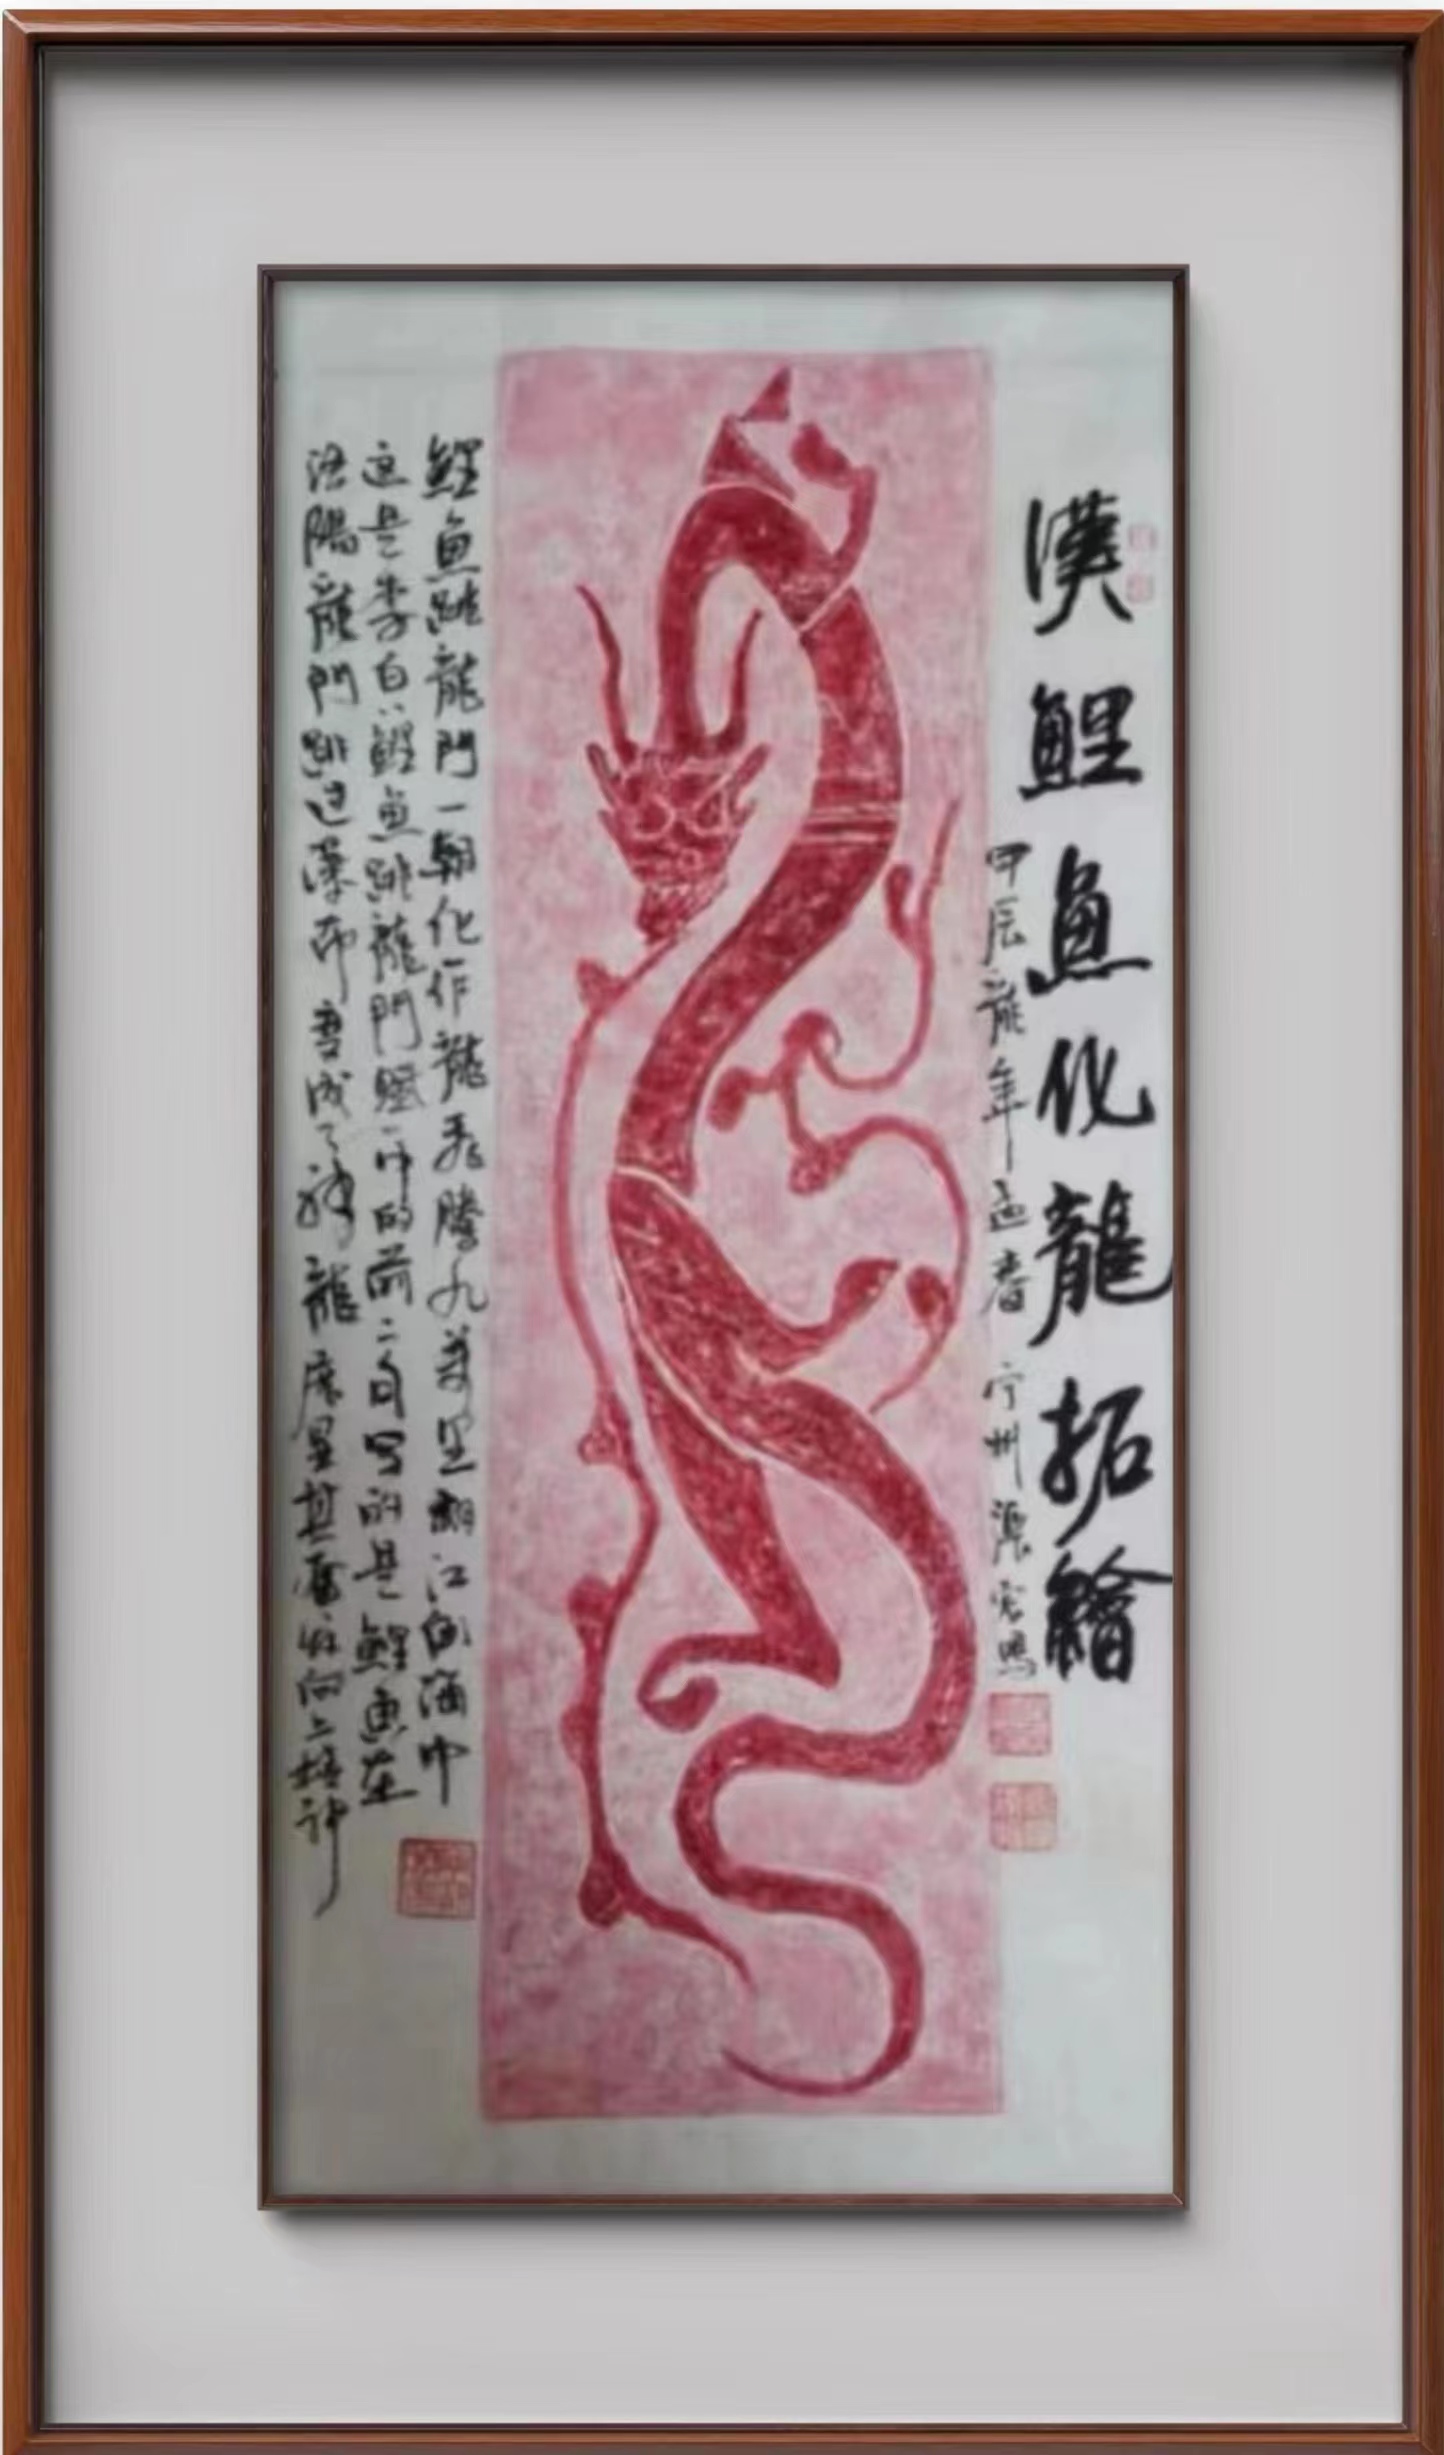 漢鯉魚化龍拓繪
甲辰龍年孟春 宁州源宏鳴
鯉魚跳龍門一朝化作龍飛騰九萬里翻江倒海中
这是李白《鯉魚跳龍門賦》中的前二句写的是鯉魚在
洛陽龍門跳过瀑布变成了神龍 展显其奋发向上精神